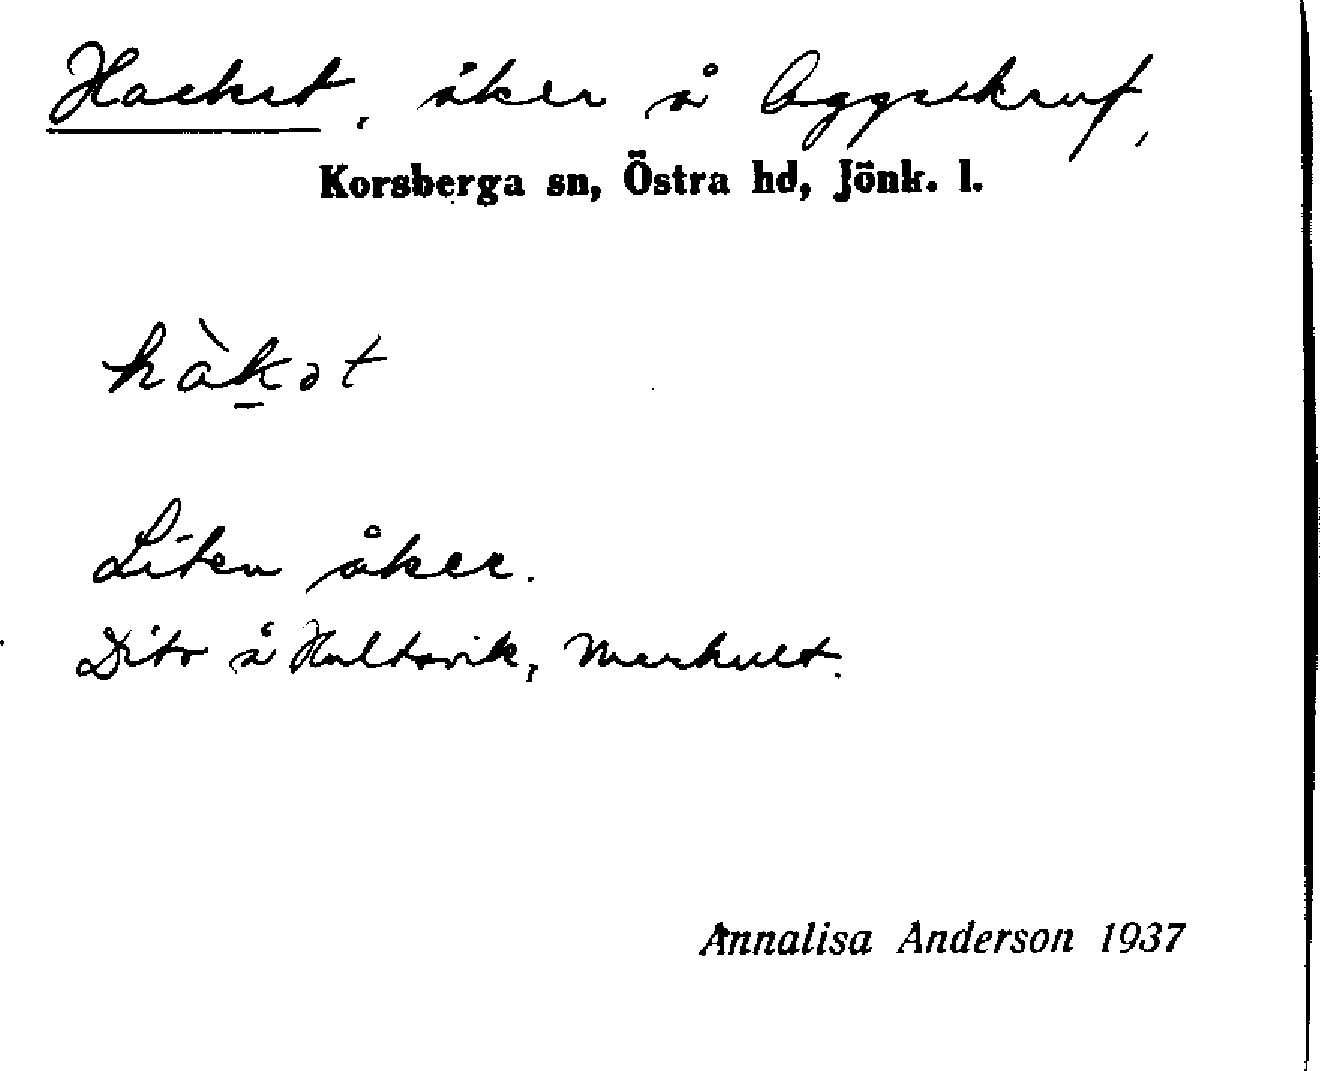 Hacket, åker å Aggatkruf,
Korsberga sn, Östra hd, Jönk. l.
hàkət
Liten åker.
Dito å Hultsvik, Markult.
Annalisa Anderson 1937